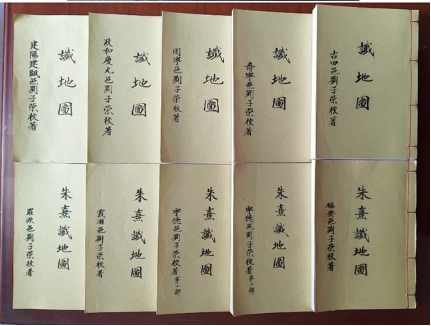 讖地圖
古田邑劉子榮枝著
讖地圖
壽寧邑劉子榮枝著
讖地圖
周寧邑劉子榮枝著
讖地圖
政和慶元邑劉子榮枝著
讖地圖
建陽建甌邑劉子榮枝著
朱熹讖地圖
福安邑劉子榮枝著
朱熹讖地圖
寧德邑劉子榮枝著第一部
朱熹讖地圖
寧德邑劉子榮枝著第二部
朱熹讖地圖
霞浦邑劉子榮枝著
朱熹讖地圖
羅源邑劉子榮枝著